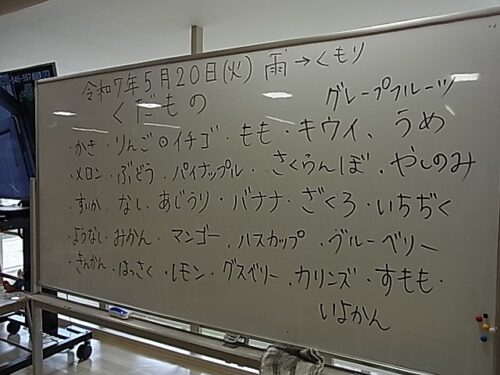 令和7年5月20日(火) 雨→くもり
くだもの
グレープフルーツ
・かき・りんご◎イチゴ・もも・キウイ、うめ
・メロン・ぶどう・パイナップル・さくらんぼ・やしのみ
・すいか・なし・あじうり・バナナ・ざくろ・いちぢく
・ようなし・みかん・マンゴー・ハスカップ・ブルーベリー
・きんかん・はっさく・レモン・グスベリー・カリンズ・すもも・
いよかん